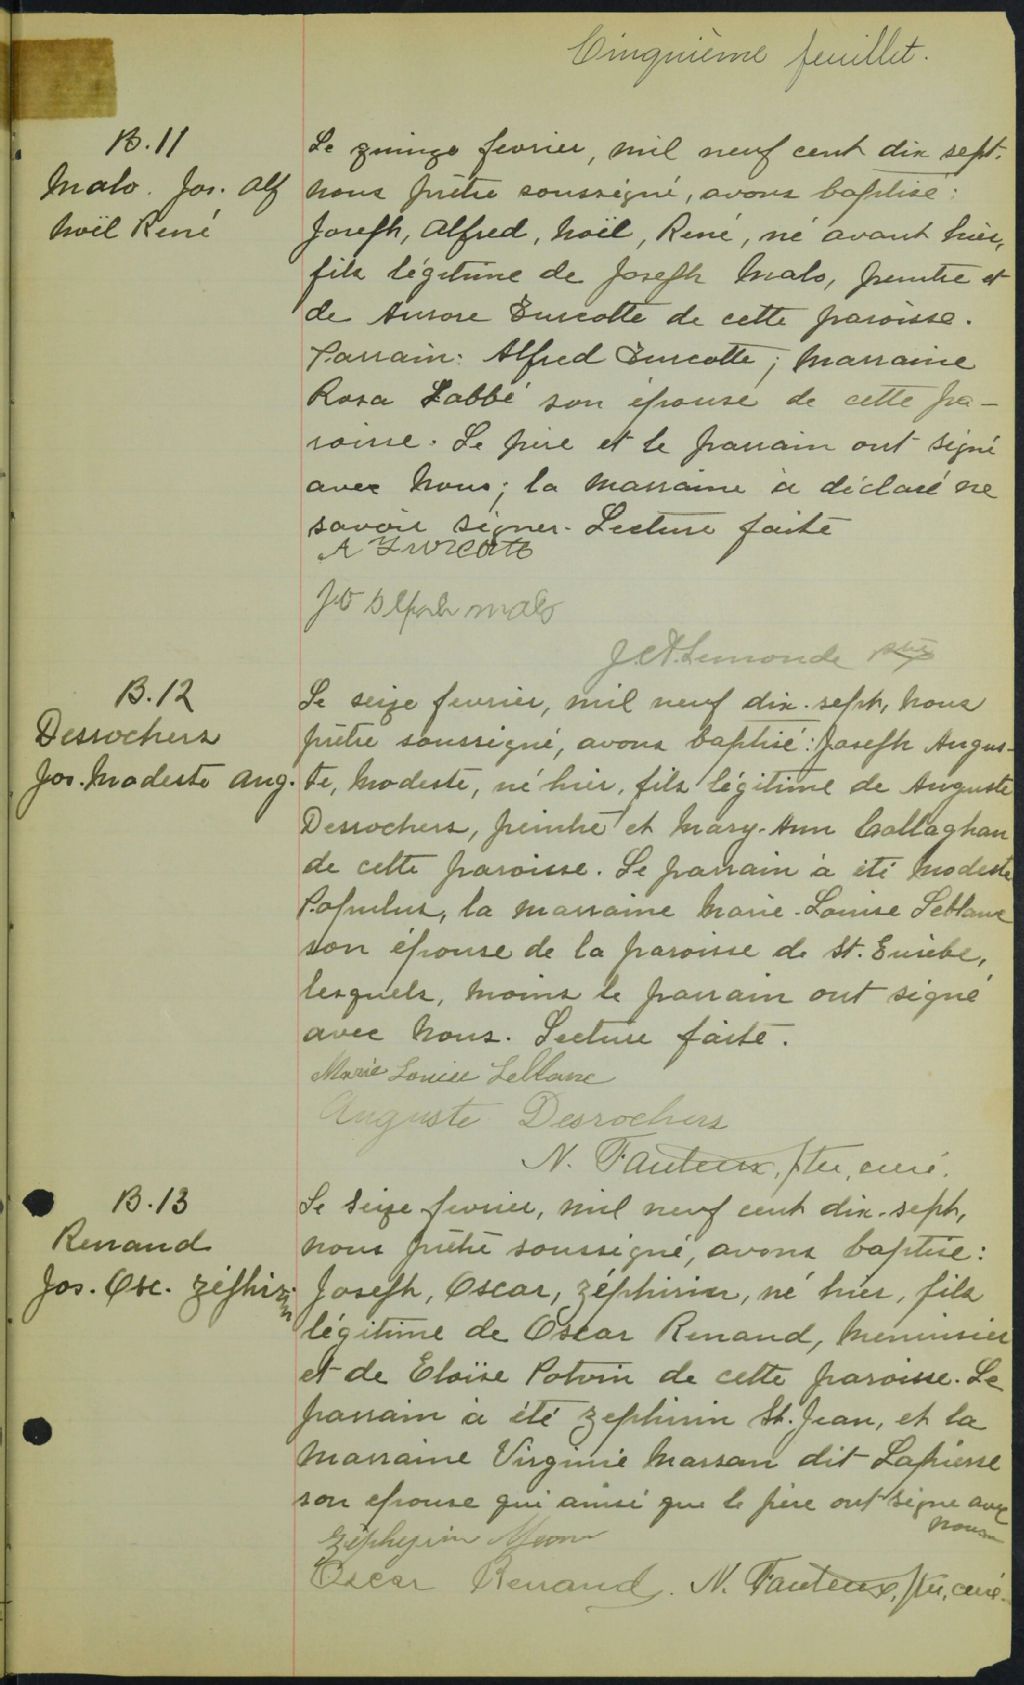 Cinquième feuillet.
B.11
Malo. Jos. Alf
Noël René
Le quinze fevrier, mil neuf cent dix sept.
nous prêtre soussigné, avons baptisé:
Joseph, Alfred, Noël, René, né avant hier,
fils légitime de Joseph Malo, peintre et
de Aurore Turcotte de cette paroisse.
Parrain: Alfred Turcotte; Marraine
Rosa Labbé son épouse de cette pa-
roisse. Le père et le parrain ont signé
avec nous; la marraine à déclaré ne
savoir signer. Lecture faite
A Turcotte
Joseph malo
J.A. Lemonde ptre
B.12
Desrochers
Jos. Modeste Aug.
Le seize fevrier, mil neuf dix-sept, nous
prêtre soussigné, avons baptisé: Joseph Augus-
te, Modeste, né hier, fils légitime de Auguste
Desrochers, peintre et Mary-Ann Callaghan
de cette paroisse. Le parrain à été Modeste
Populus, la marraine Marie-Louise Leblanc
son épouse de la paroisse de St. Eusèbe,
lesquels, moins le parrain ont signé
avec nous. Lecture faite.
Marie Louise Leblanc
Auguste Desrochers
N. Fauteux, ptre, curé.
B.13
Renaud
Jos. Osc. Zéphirin
Le seize fevrier, mil neuf cent dix-sept,
nous prêtre soussigné, avons baptisé:
Joseph, Oscar, Zéphirin, né hier, fils
légitime de Oscar Renaud, menuisier
et de Eloïse Potvin de cette paroisse. Le
parrain à été Zephirin St. Jean, et la
marraine Virginie Marsan dit Lapierre
son epouse qui ainsi que le père ont signé avec
nous
Zéphyrin
Oscar Renaud. N. Fauteux, ptre, curé.